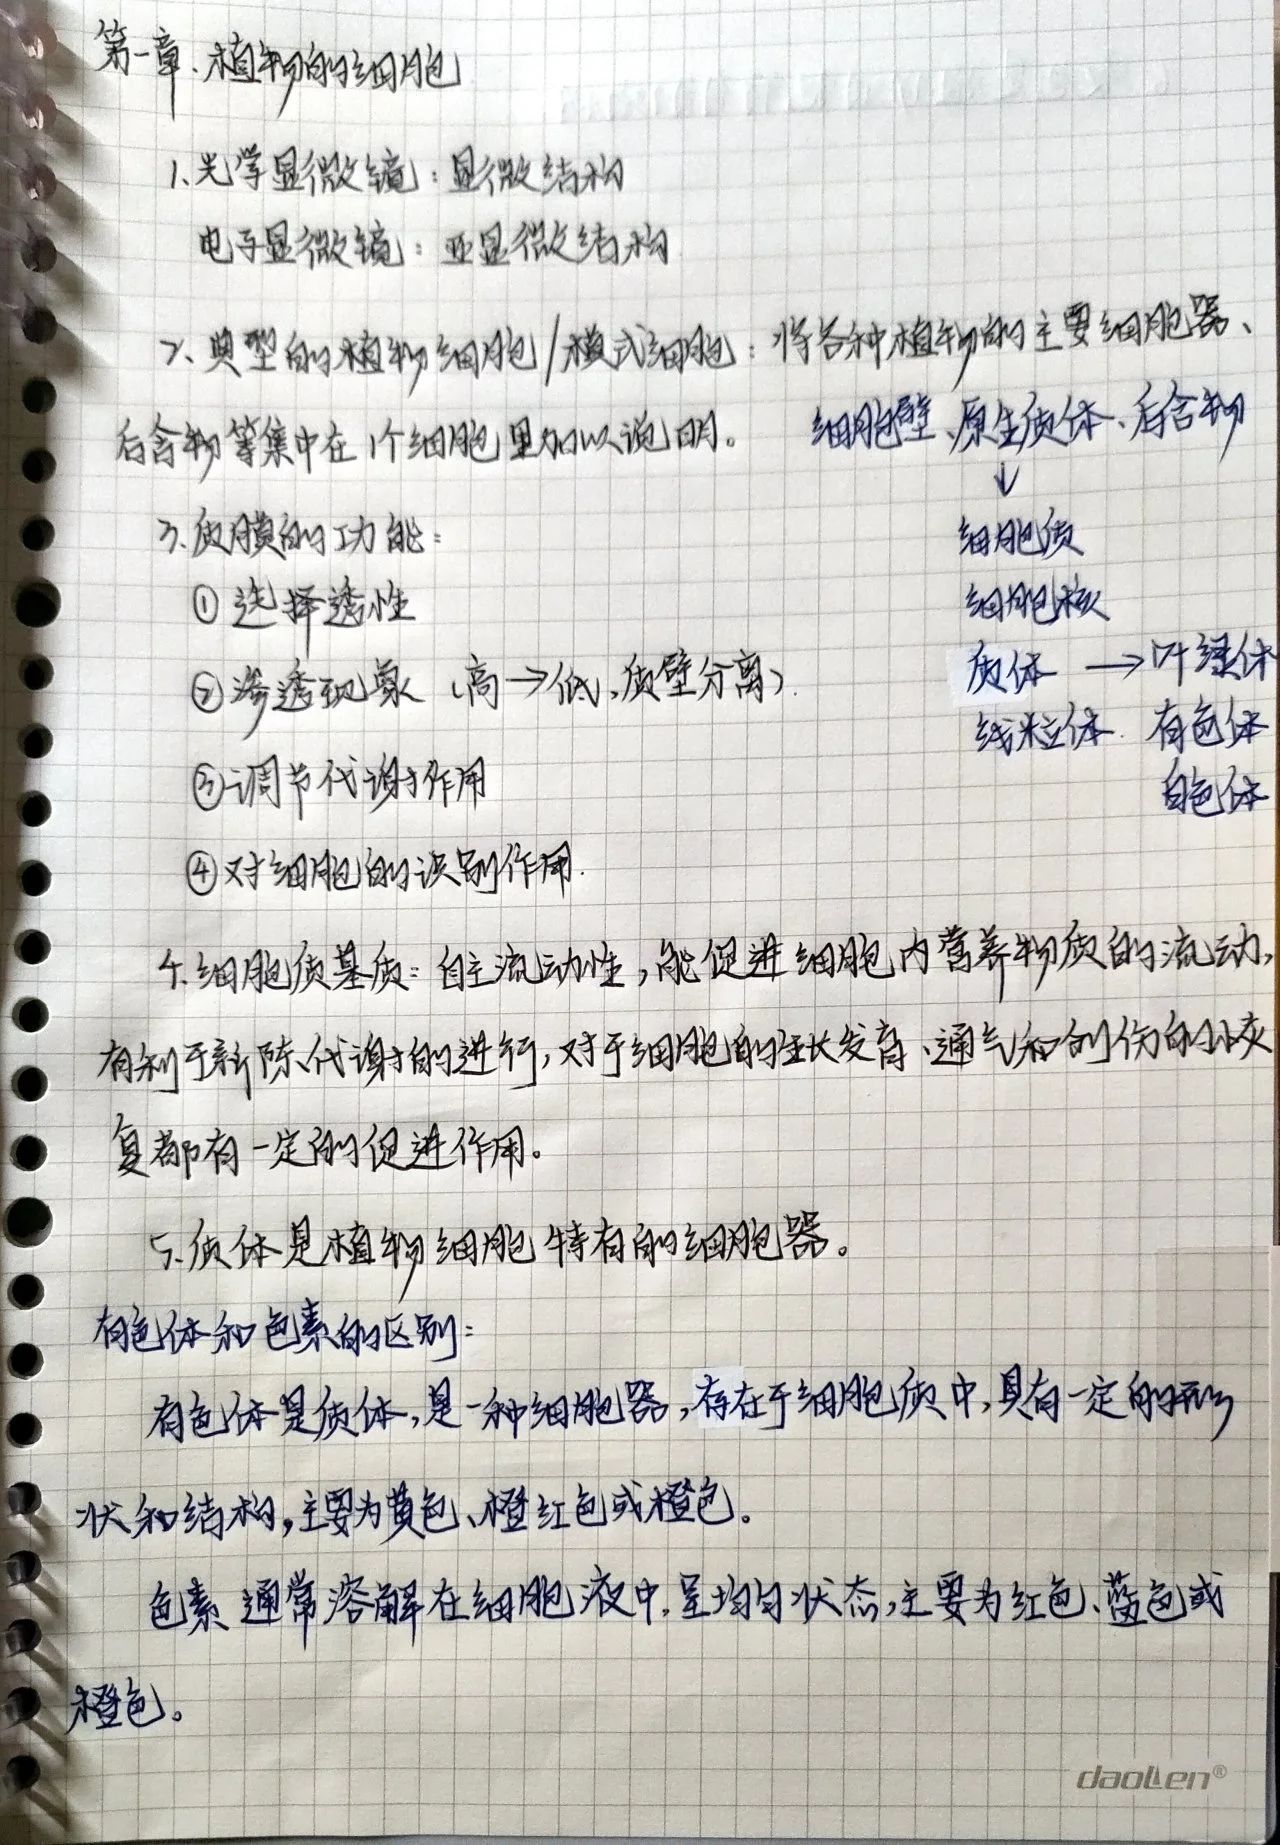 第一章、植物的细胞
1、光学显微镜：显微结构
电子显微镜：亚显微结构
2、典型的植物细胞/模式细胞：将各种植物的主要细胞器、
后含物等集中在1个细胞里加以说明。
细胞壁、原生质体、后含物
↓
细胞质
细胞核
质体 → 叶绿体
线粒体 有色体
白色体
3、质膜的功能：
①选择透性
②渗透现象（高→低，质壁分离）.
③调节代谢作用
④对细胞的识别作用.
4、细胞质基质：自主流动性，能促进细胞内营养物质的流动，
有利于新陈代谢的进行，对于细胞的生长发育、通气和创伤的恢
复都有一定的促进作用。
5、质体是植物细胞特有的细胞器。
有色体和色素的区别：
有色体是质体，是一种细胞器，存在于细胞质中，具有一定的形
状和结构，主要为黄色、橙红色或橙色。
色素通常溶解在细胞液中，呈均匀状态，主要为红色、蓝色或
橙色。
daolen®